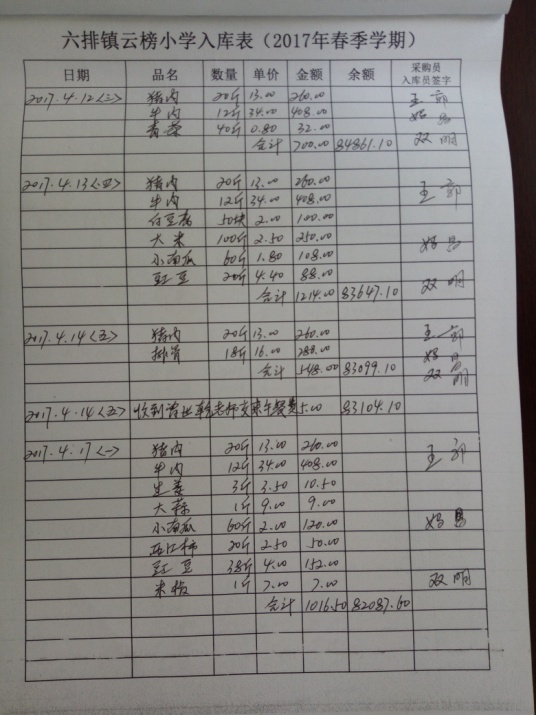 六排镇云榜小学入库表（2017年春季学期）
日期 品名 数量 单价 金额 余额 采购员入库员签字
2017.4.12<三> 猪肉 20斤 13.00 260.00 王
牛肉 12斤 34.00 408.00
青菜 40斤 0.80 32.00
合计 700.00 84861.10 双明
2017.4.13<四> 猪肉 20斤 13.00 260.00 王
牛肉 12斤 34.00 408.00
白豆腐 50块 2.00 100.00
大米 100斤 2.50 250.00
小南瓜 60斤 1.80 108.00
豇豆 20斤 4.40 88.00
合计 1214.00 83647.10 双明
2017.4.14<五> 猪肉 20斤 13.00 260.00 王
排骨 18斤 16.00 288.00
合计 548.00 83099.10 双明
2017.4.14<五> 收到 老师交来午餐费 5.00 83104.10
2017.4.17<一> 猪肉 20斤 13.00 260.00 王
牛肉 12斤 34.00 408.00
生姜 3斤 3.50 10.50
大蒜 1斤 9.00 9.00
小南瓜 60斤 2.00 120.00
西红柿 20斤 2.50 50.00
豇豆 38斤 4.00 152.00
米 1斤 7.00 7.00 双明
合计 1016.50 82087.60